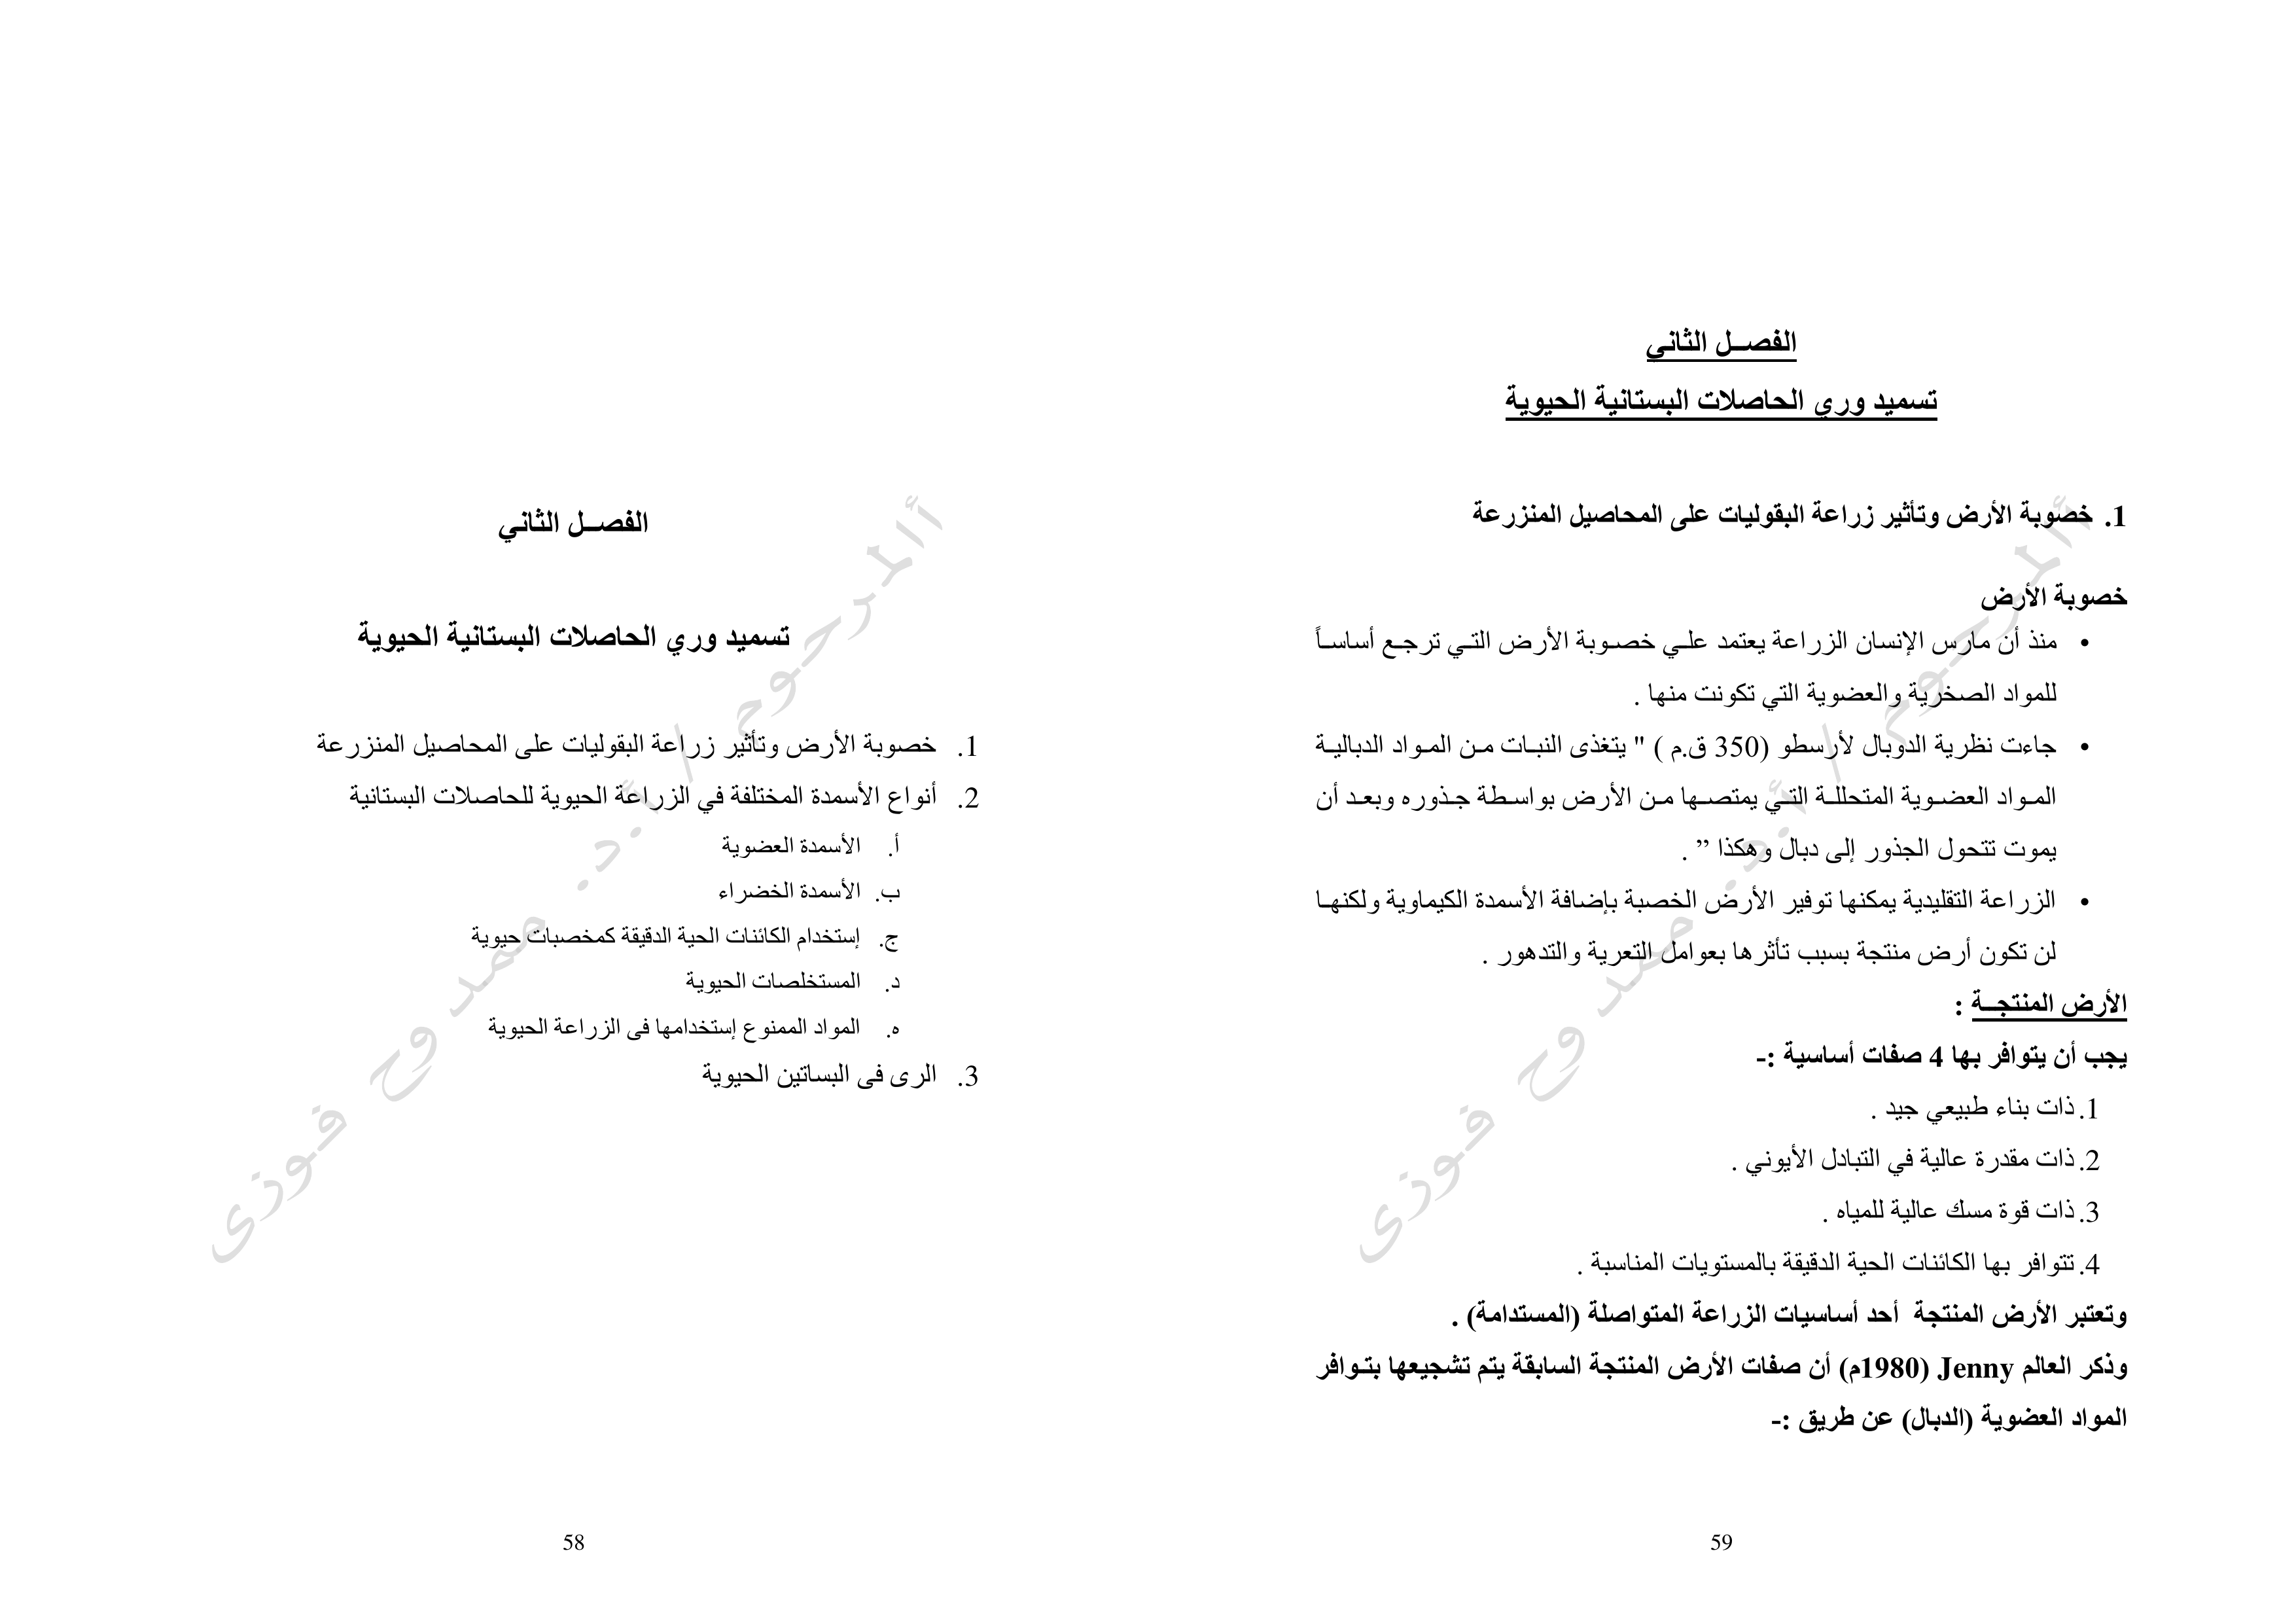 الفصــل الثاني
تسميد وري الحاصلات البستانية الحيوية
1. خصوبة الأرض وتأثير زراعة البقوليات على المحاصيل المنزرعة
2. أنواع الأسمدة المختلفة في الزراعة الحيوية للحاصلات البستانية
أ. الأسمدة العضوية
ب. الأسمدة الخضراء
ج. إستخدام الكائنات الحية الدقيقة كمخصبات حيوية
د. المستخلصات الحيوية
ه. المواد الممنوع إستخدامها فى الزراعة الحيوية
3. الرى فى البساتين الحيوية
ألمرحوم / أ.د. ممدوح فوزى
58
الفصــل الثاني
تسميد وري الحاصلات البستانية الحيوية
1. خصوبة الأرض وتأثير زراعة البقوليات على المحاصيل المنزرعة
خصوبة الأرض
• منذ أن مارس الإنسان الزراعة يعتمد علـي خصـوبة الأرض التـي ترجـع أساسـاً
للمواد الصخرية والعضوية التي تكونت منها .
• جاءت نظرية الدوبال لأرسطو (350 ق.م ) " يتغذى النبـات مـن المـواد الدباليـة
المـواد العضـوية المتحللـة التـي يمتصـها مـن الأرض بواسـطة جـذوره وبعـد أن
يموت تتحول الجذور إلى دبال وهكذا ” .
• الزراعة التقليدية يمكنها توفير الأرض الخصبة بإضافة الأسمدة الكيماوية ولكنهـا
لن تكون أرض منتجة بسبب تأثرها بعوامل التعرية والتدهور .
الأرض المنتجــة :
يجب أن يتوافر بها 4 صفات أساسية :-
1. ذات بناء طبيعي جيد .
2. ذات مقدرة عالية في التبادل الأيوني .
3. ذات قوة مسك عالية للمياه .
4. تتوافر بها الكائنات الحية الدقيقة بالمستويات المناسبة .
وتعتبر الأرض المنتجة أحد أساسيات الزراعة المتواصلة (المستدامة) .
وذكر العالم Jenny (1980م) أن صفات الأرض المنتجة السابقة يتم تشجيعها بتـوافر
المواد العضوية (الدبال) عن طريق :-
ألمرحوم / أ.د. ممدوح فوزى
59